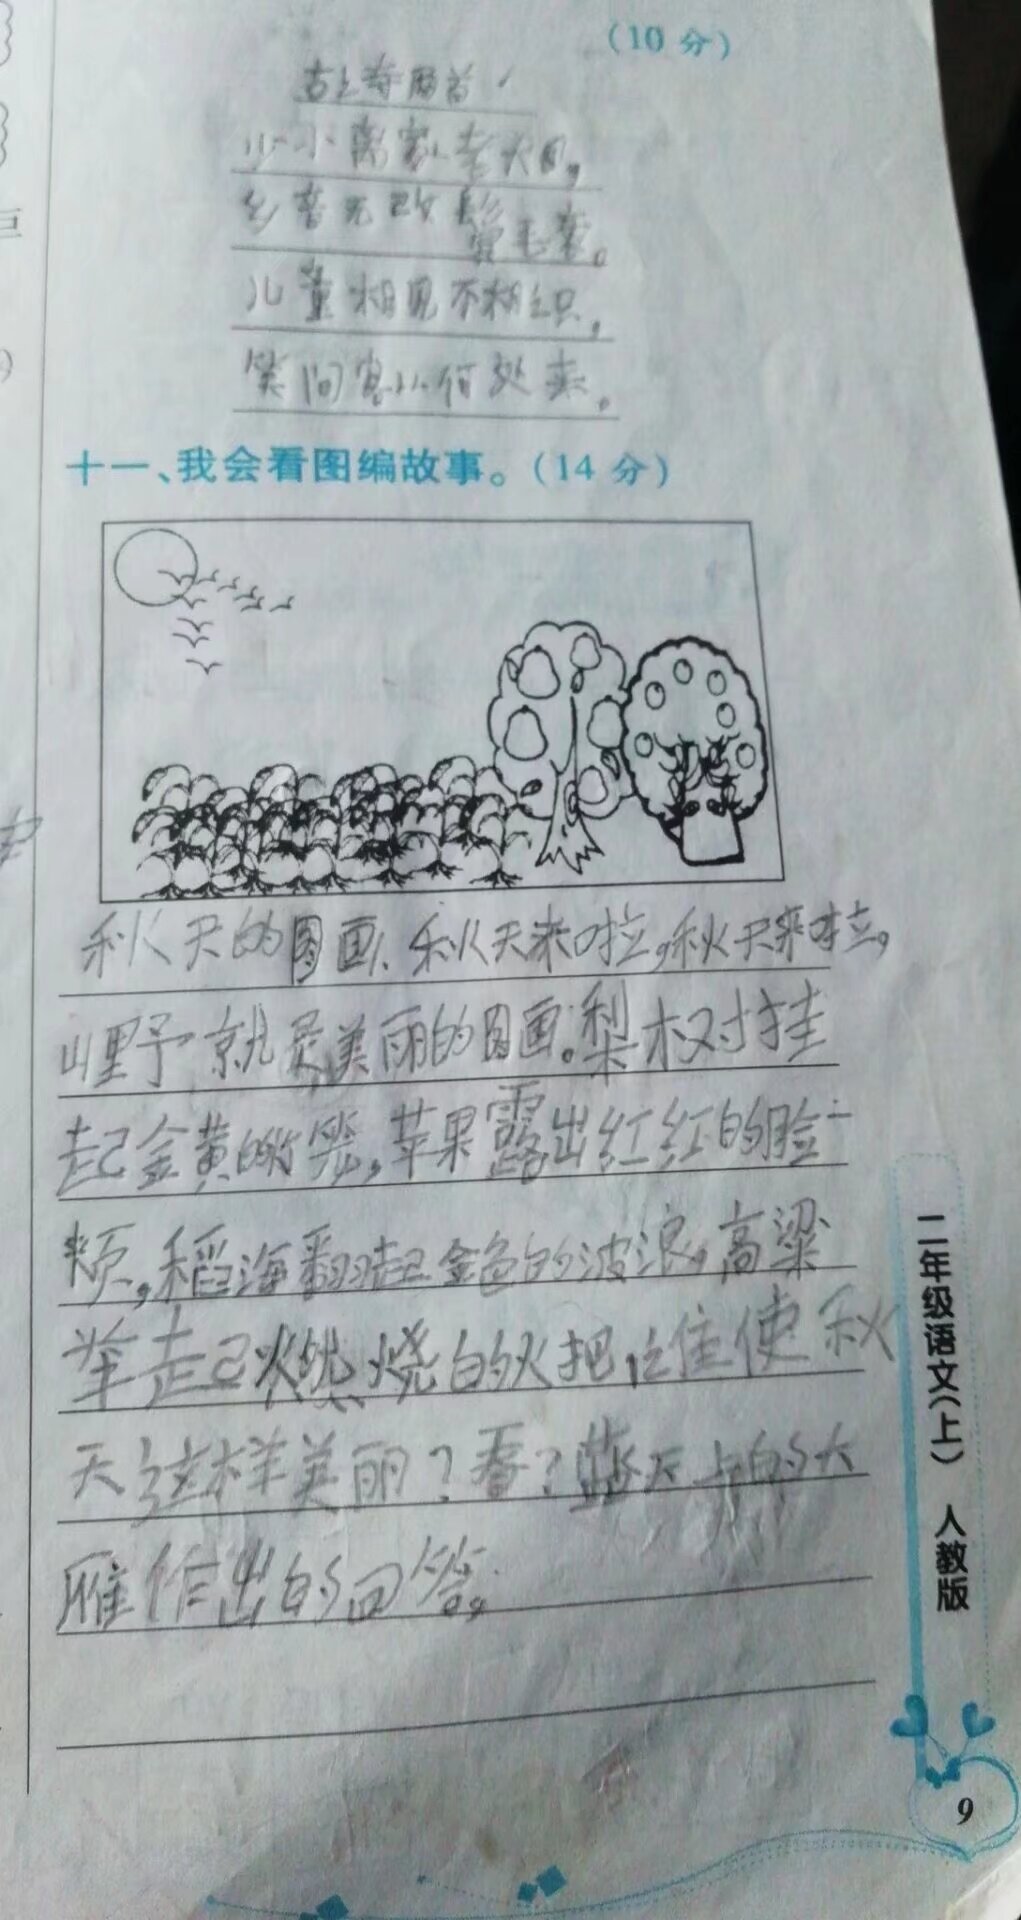 (10 分)
古诗两首
少小离家老大回，
乡音无改鬓毛衰。
儿童相见不相识，
笑问客从何处来。
十一、我会看图编故事。(14 分)
秋天的图画、秋天来啦，秋天来啦，
山野就是美丽的图画。梨树挂
起金黄的灯笼，苹果露出红红的脸
颊，稻海翻起金色的波浪，高粱
举起燃烧的火把，谁使秋
天这样美丽？看？蓝天上的大
雁作出的回答。
二年级语文(上) 人教版
9